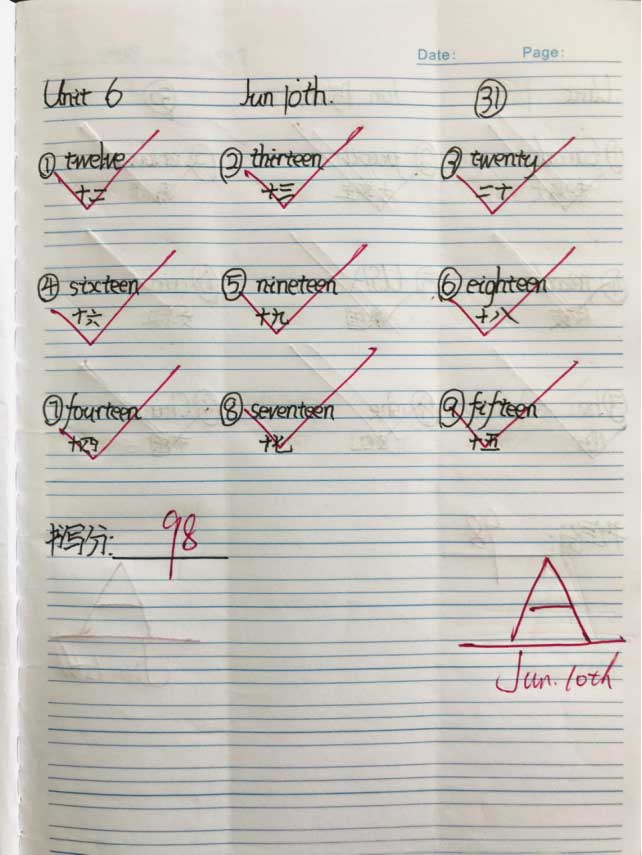 Date: Page:
Unit 6 Jun 10th. ㉛
① twelve ② thirteen ③ twenty
十二 十三 二十
④ sixteen ⑤ nineteen ⑥ eighteen
十六 十九 十八
⑦ fourteen ⑧ seventeen ⑨ fifteen
十四 十七 十五
书写分: 98
A
Jun. 10th